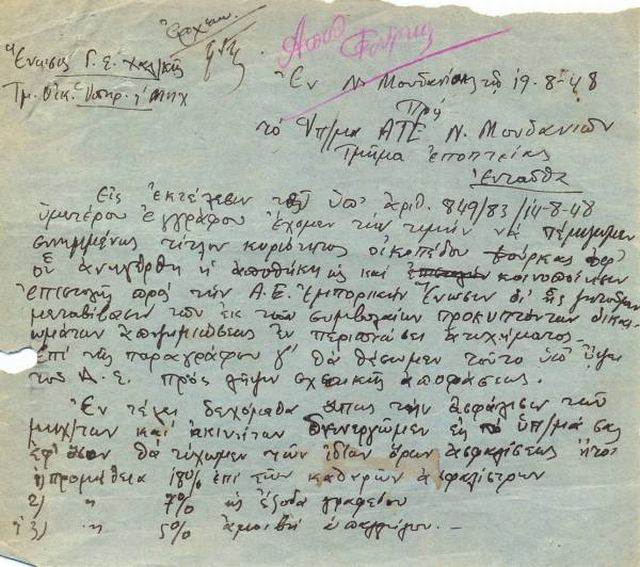 Ἕνωσις Γ. Σ. Χαλ/κῆς
Τμ.
Ἐν Ν. Μουδανίοις τῇ 19-8-48
Πρὸς
τὸ Ὑπ/μα ΑΤΕ Ν. Μουδανιῶν
Τμῆμα ἐποπτείας
Ἐνταῦθα
Εἰς ἐκτέλεσιν τοῦ ὑπ' ἀριθ. 849/83/14-8-48
ὑμετέρου ἐγγράφου ἔχομεν τὴν τιμὴν νὰ πέμψωμεν
συνημμένως τίτλον κυριότητος οἰκοπέδου Φούρκας ἐφ'
οὗ ἀνηγέρθη ἡ ἀποθήκη ὡς καὶ κοινοποίησιν
ἐπιστολῆς πρὸς τὴν Α.Ε. Ἐμπορικὴν Ἕνωσιν δι' ἧς
μεταβίβασιν τῶν ἐκ τῶν συμβολαίων προκυπτόντων δικαι-
ωμάτων ἀποζημιώσεως ἐν περιπτώσει ἀτυχήματος.
Ἐπὶ τῆς παραγράφου γ' θὰ θέσωμεν τοῦτο ὑπ' ὄψει
τοῦ Δ.Σ. πρὸς λῆψιν σχετικῆς ἀποφάσεως.
Ἐν τέλει δεχόμεθα ὅπως τὴν ἀσφάλισιν τῶν
μηχ/των καὶ ἀκινήτων ἐνεργῶμεν εἰς τὸ ὑπ/μά σας
ἐφ' ὅσον θὰ τύχωμεν τῶν ἰδίων ὅρων ἀσφαλίσεως ἤτοι
1) προμήθεια 18% ἐπὶ τῶν καθαρῶν ἀσφαλίστρων
2) " 7% ὡς ἔξοδα γραφείου
3) " 5% ἀμοιβὴ ὑπαλλήλου. —